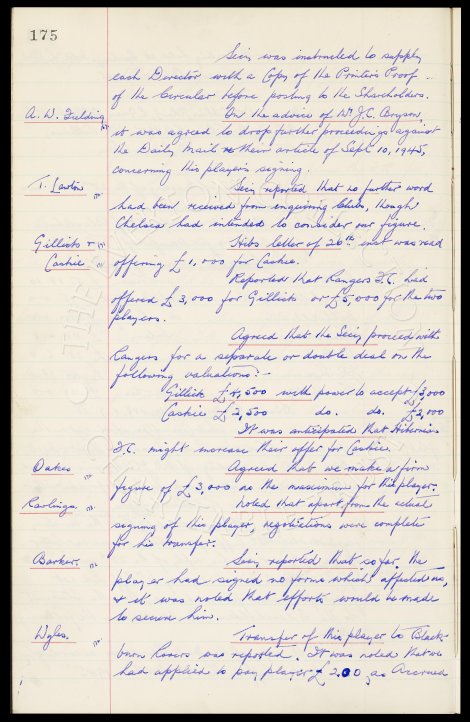 175
Secy was instructed to supply
each Director with a Copy of the Printers Proof
of the Circular before posting to the Shareholders.
A. W. Fielding On the advice of Mr J.C. Bryson,
it was agreed to drop further proceedings against
the Daily Mail re their article of Sept 10, 1945,
concerning this players signing.
T. Lawton Secy reported that no further word
had been received from enquiring Clubs, though
Chelsea had intended to consider our figure.
Gillick & Hibs letter of 26th inst was read
Caskie offering £1,000 for Caskie.
Reported that Rangers F.C. had
offered £3,000 for Gillick or £5,000 for the two
players.
Agreed that the Secy proceed with
Rangers for a separate or double deal on the
following valuations:-
Gillick £4,500 with power to accept £3,000
Caskie £2,500 do. do. £2,000
It was anticipated that Hibernian
F.C. might increase their offer for Caskie.
Oakes Agreed that we make a firm
figure of £3,000 as the maximum for this player.
Rawlings. Noted that apart from the actual
signing of this player, negotiations were complete
for his transfer.
Barker. Secy reported that so far, the
player had signed no forms which affected us,
& it was noted that efforts would be made
to secure him.
Wyles. Transfer of this player to Black-
burn Rovers was reported. It was noted that we
had applied to pay player £200 as Accrued